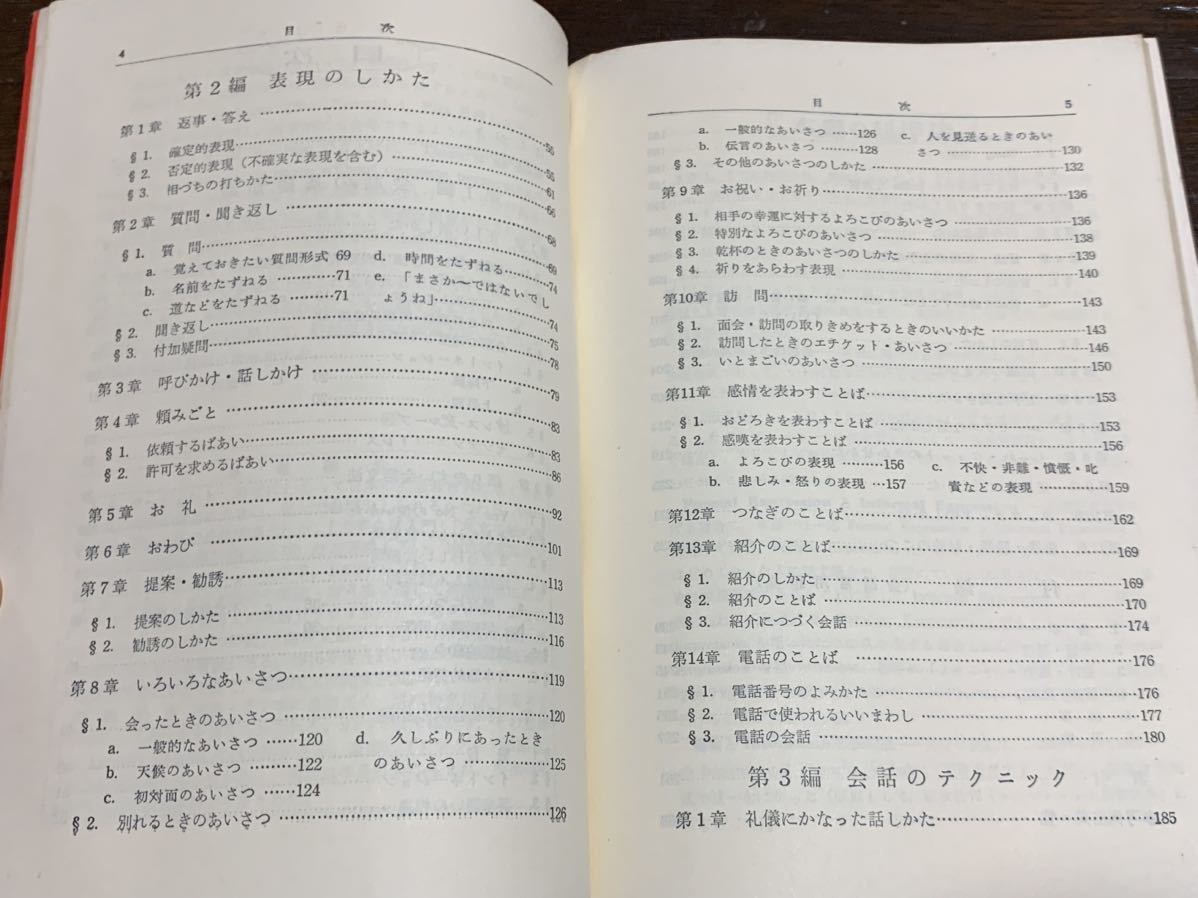 4 目 次
第2編 表現のしかた
第1章 返事・答え……55
§1. 確定的表現……55
§2. 否定的表現(不確実な表現を含む)……61
§3. 相づちの打ちかた……66
第2章 質問・聞き返し……68
§1. 質 問……69
a. 覚えておきたい質問形式 69
b. 名前をたずねる……71
c. 道などをたずねる……71
d. 時間をたずねる……74
e. 「まさか〜ではないでし
ょうね」……74
§2. 聞き返し……75
§3. 付加疑問……78
第3章 呼びかけ・話しかけ……79
第4章 頼みごと……83
§1. 依頼するばあい……83
§2. 許可を求めるばあい……86
第5章 お 礼……92
第6章 おわび……101
第7章 提案・勧誘……113
§1. 提案のしかた……113
§2. 勧誘のしかた……116
第8章 いろいろなあいさつ……119
§1. 会ったときのあいさつ……120
a. 一般的なあいさつ……120
b. 天候のあいさつ……122
c. 初対面のあいさつ……124
d. 久しぶりにあったとき
のあいさつ……125
§2. 別れるときのあいさつ……126
目 次 5
a. 一般的なあいさつ……126
b. 伝言のあいさつ……128
c. 人を見送るときのあい
さつ……130
§3. その他のあいさつのしかた……132
第9章 お祝い・お祈り……136
§1. 相手の幸運に対するよろこびのあいさつ……136
§2. 特別なよろこびのあいさつ……138
§3. 乾杯のときのあいさつのしかた……139
§4. 祈りをあらわす表現……140
第10章 訪 問……143
§1. 面会・訪問の取りきめをするときのいいかた……143
§2. 訪問したときのエチケット・あいさつ……146
§3. いとまごいのあいさつ……150
第11章 感情を表わすことば……153
§1. おどろきを表わすことば……153
§2. 感嘆を表わすことば……156
a. よろこびの表現……156
b. 悲しみ・怒りの表現…157
c. 不快・非難・憤慨・叱
責などの表現……159
第12章 つなぎのことば……162
第13章 紹介のことば……169
§1. 紹介のしかた……169
§2. 紹介のことば……170
§3. 紹介につづく会話……174
第14章 電話のことば……176
§1. 電話番号のよみかた……176
§2. 電話で使われるいいまわし……177
§3. 電話の会話……180
第3編 会話のテクニック
第1章 礼儀にかなった話しかた……185